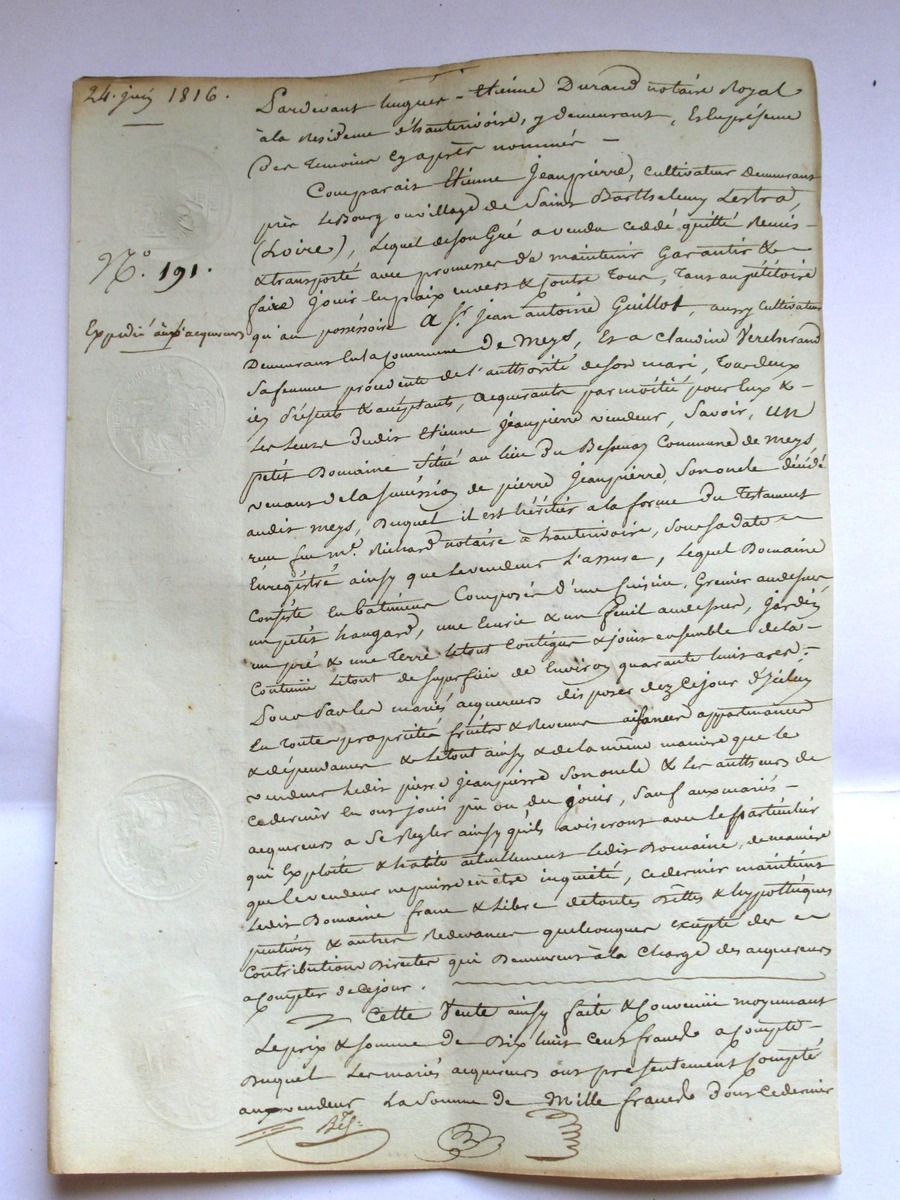 24. juin 1816.
N.º 191.
Expedié aux acquereurs
Pardevant hugues-Etienne Durand notaire Royal
à la Residence d'hauterivoire, y demeurant, Et En présence
Des temoins Cy après nommés —
Comparait Etienne Jeanpierre, Cultivateur demeurant
près Le Bourg ou village de Saint Barthelemy Lestra,
(Loire), Lequel de son Gré a vendu cedé, quitté Remis
& transporté avec promesse de maintenir Garantir &
faire Jouir En paix envers & Contre tous, tant au pétitoire
qu'au possésoire A Sr. jean antoine Guillot, aussy Cultivateur
Demeurant En la Commune de Meys, Et a Claudine Vercherand
Sa femme procedente de l'authorité de son mari, tous deux
ici présents & acceptants, acquerants par moitié pour Eux &
Les Leurs dudit Etienne Jeanpierre vendeur, Savoir, un
petit Domaine situé au lieu du Besonay Commune de meys,
venant de la succession de pierre Jeanpierre, Son oncle décédé
audit meys, Duquel il est héritier a la forme du testament
reçu feu me. Richard notaire à hauterivoire, sous sa date
Enregistré ainsy que le vendeur L'assure, Lequel Domaine
Consiste En batiments Composés d'une Cuisine, Grenier au dessus
un petit hangard, une Ecurie & un fenil au dessus, Jardin
un pré & une terre le tout contigus & joint ensemble de la
Contenue Le tout de superficie de Environ quarante huit ares;
Pour Par les mariés acquereurs disposer dez ce jour d'icelui
En toutes propriétés fruits & Revenus aisances appartenances
& dépendances & le tout ainsy & de la même maniere que le
vendeur Ledit pierre Jeanpierre Son oncle & les autheurs de
ce dernier En ont joui pu ou du jouir, sauf aux mariés
acquereurs a Se Regler ainsy qu'ils aviseront avec le particulier
qui Exploite & habite actuellement Ledit Domaine, de maniere
que le vendeur ne puisse en être inquiété, ce dernier maintient
Ledit Domaine franc & Libre de toutes Dettes & hypothèques
pensions & autres Redevances quelconques excepté des
Contributions Directes qui Demeurent à la Charge des acquereurs
a Compter de ce jour.
Cette Vente ainsy faite & Convenue moyennant
Le prix & somme de Dix huit Cent francs a compte
Duquel Les mariés acquereurs ont présentement Compté
aux vendeur La Somme de Mille francs dont ce dernier